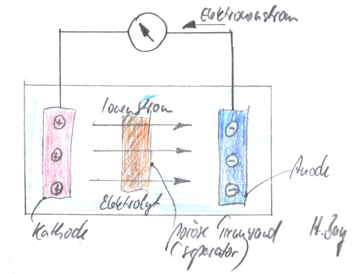 Elektronenstrom
Ionenstrom
Elektrolyt
Kathode
poröse Trennwand
(Separator)
Anode